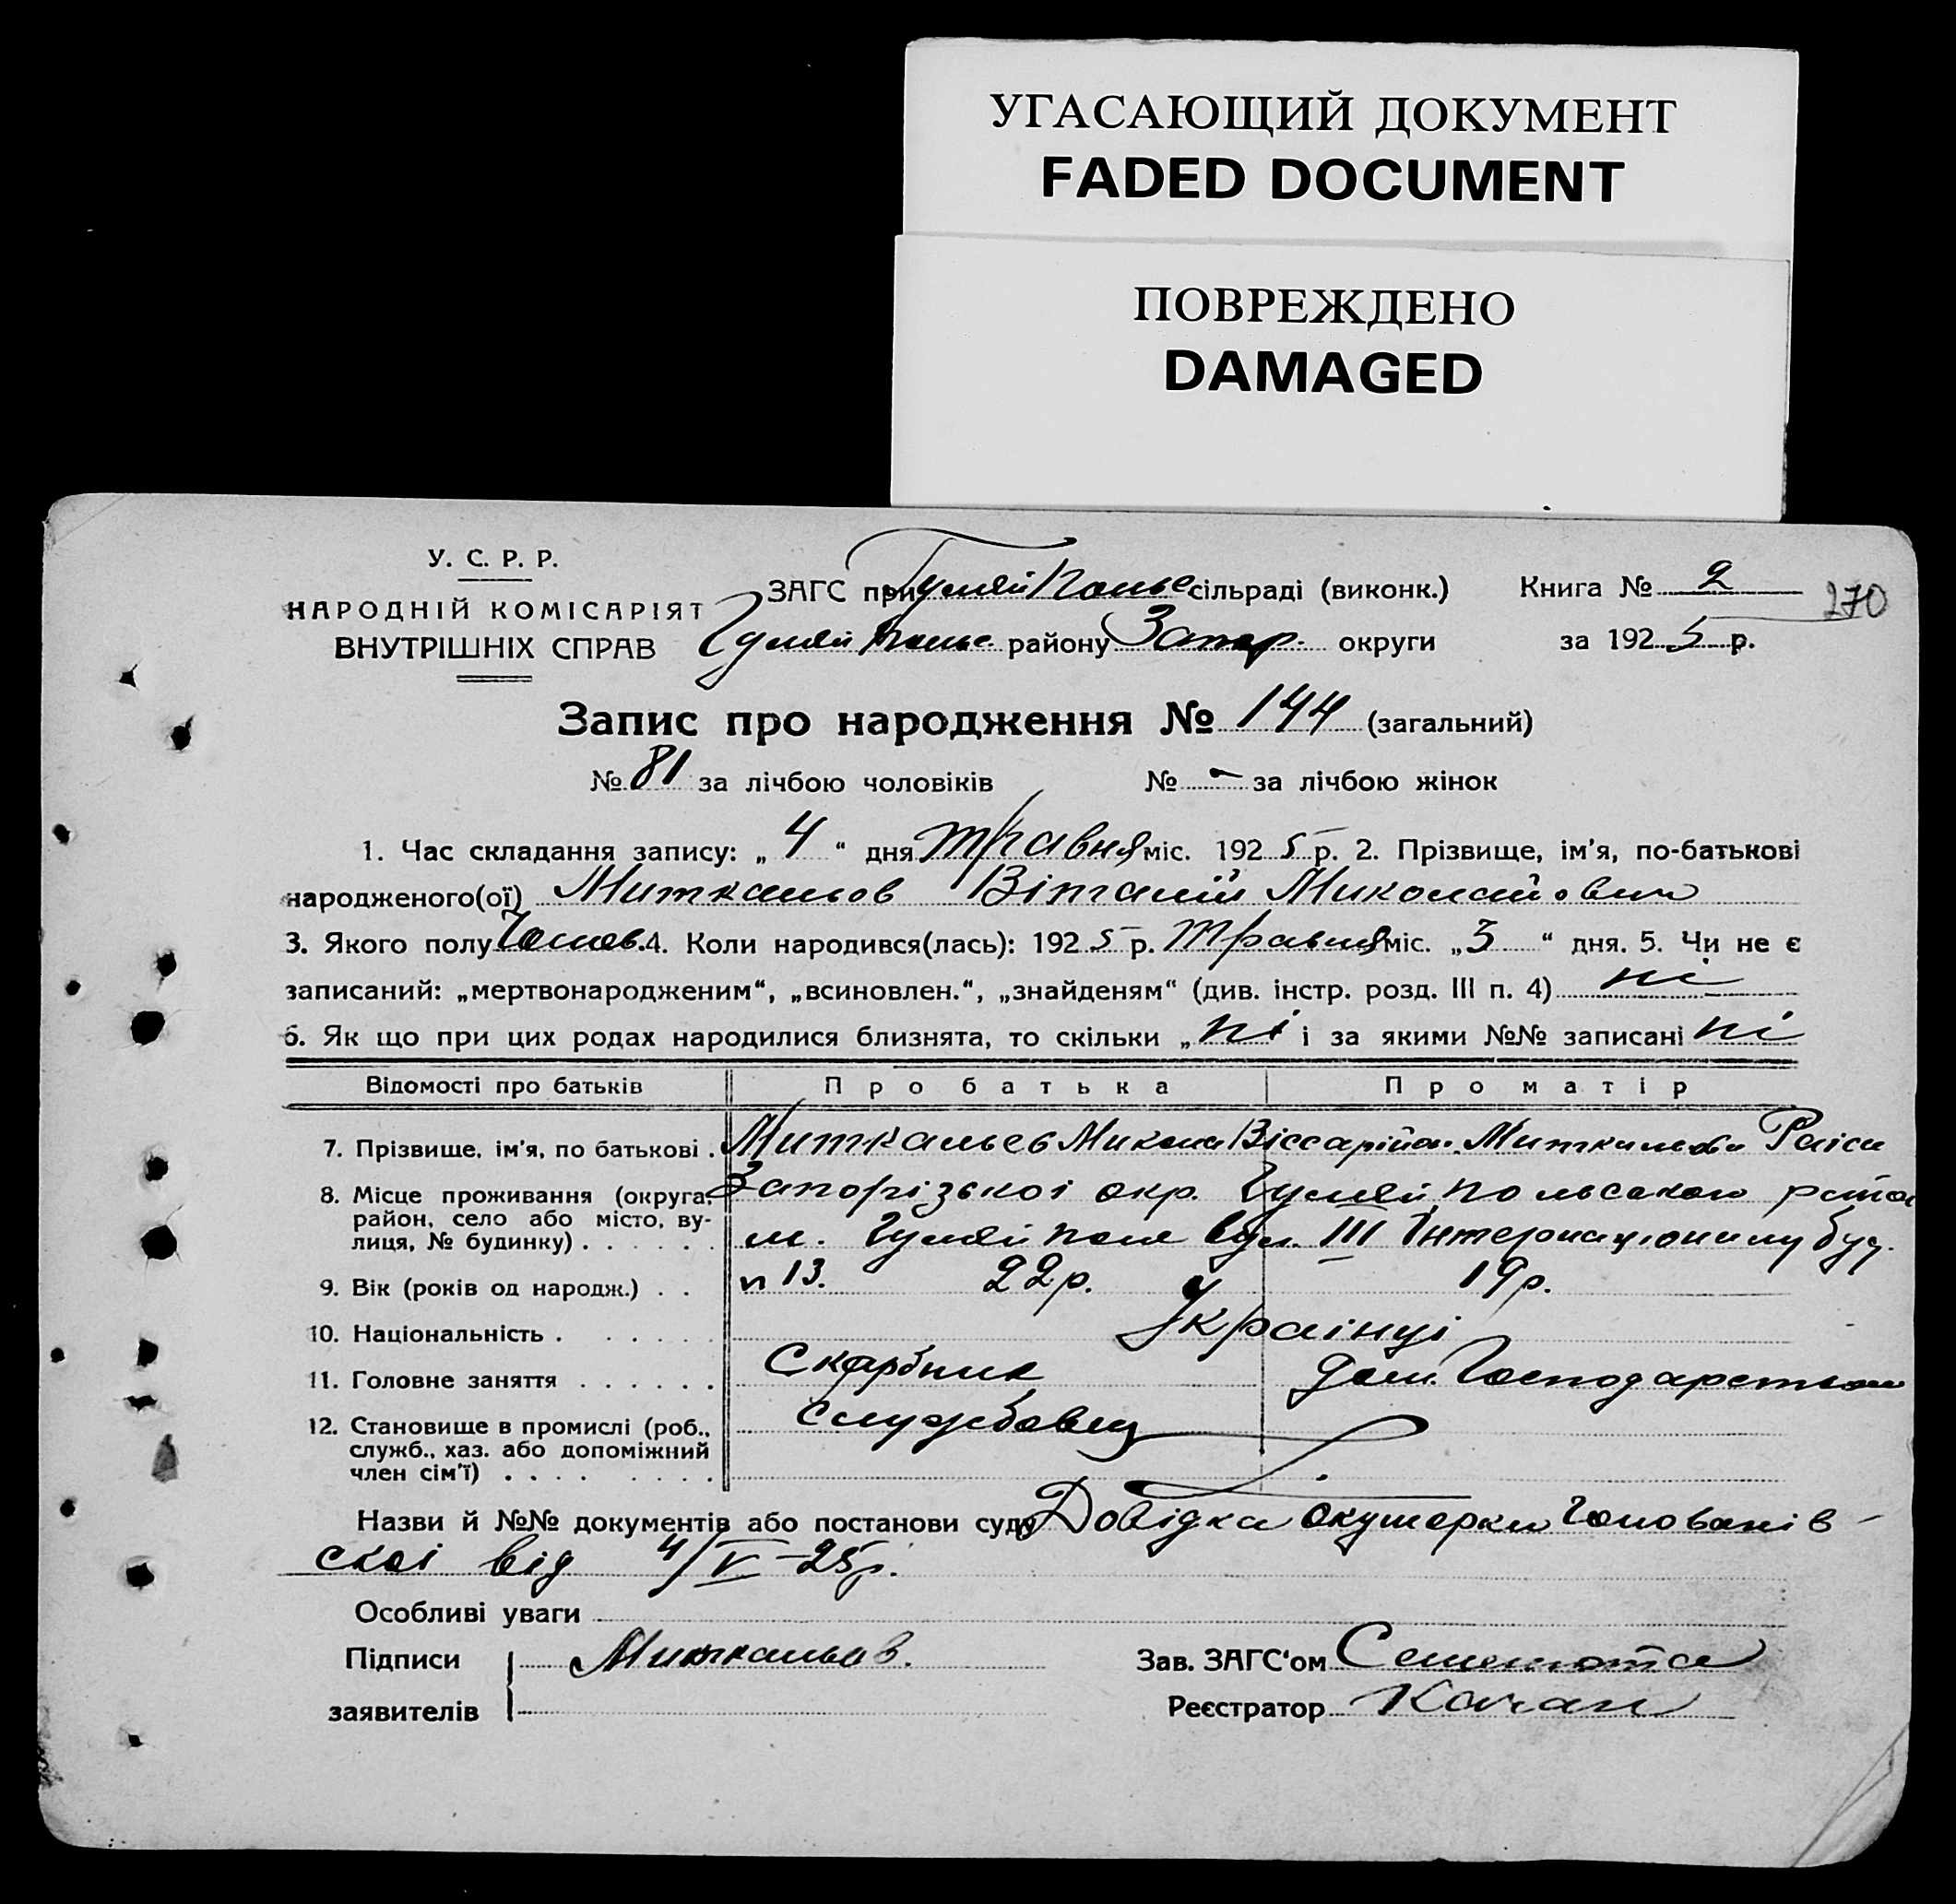 УГАСАЮЩИЙ ДОКУМЕНТ
FADED DOCUMENT
ПОВРЕЖДЕНО
DAMAGED
У. С. Р. Р.
НАРОДНІЙ КОМІСАРІЯТ
ВНУТРІШНІХ СПРАВ
ЗАГС при Гуляй Польс сільраді (виконк.) Книга № 2 270
Гуляй Польс. району Запор. округи за 1925 р.
Запис про народження № 144 (загальний)
№ 81 за лічбою чоловіків № - за лічбою жінок
1. Час складання запису: „ 4 “ дня травня міс. 1925 р. 2. Прізвище, ім’я, по-батькові
народженого(ої) Миткальов Віталій Миколайович
3. Якого полу Чолов. 4. Коли народився(лась): 1925 р. травня міс. „3 “ дня. 5. Чи не є
записаний: „мертвонародженим“, „всиновлен.“, „знайденям“ (див. інстр. розд. III п. 4) ні
6. Як що при цих родах народилися близнята, то скільки „ ні і за якими №№ записані ні
Відомості про батьків Про батька Про матір
7. Прізвище, ім’я, по батькові . Миткальев Микола Віссарійов. Миткальова Раіса
8. Місце проживання (округа, район, село або місто, вулиця, № будинку) . . . . . . Запорізькоі окр. Гуляйпольського
м. Гуляй поле вул. III Інтернаціоналу буд.
9. Вік (років од народж.) . . № 13. 22 р. 19 р.
10. Національність . . . . . . Українці
11. Головне заняття . . . . . . Скарбник дом. Господарством
12. Становище в промислі (роб., служб., хаз. або допоміжний член сім’ї) . . . . . . . . Службовец
Назви й №№ документів або постанови суду Довідка акушерки
скоі від 4/V-25р.
Особливі уваги
Підписи Миткальов. Зав. ЗАГС‘ом
заявителів Реєстратор Качан